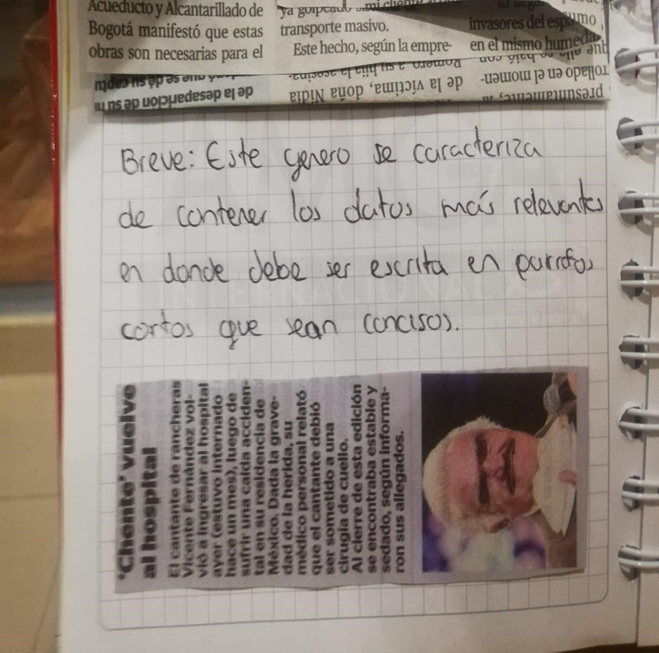 Acueducto y Alcantarillado de
Bogotá manifestó que estas
obras son necesarias para el
transporte masivo.
Este hecho, según la empre-
Invasores del
en el mismo
de la desaparición de su
de la víctima, doña Nidia
rollado en el momen-
presuntamente,
Breve: Este genero se caracteriza
de contener los datos más relevantes
en donde debe ser escrita en parrafos
cortos que sean concisos.
'Chente' vuelve
al hospital
El cantante de rancheras
Vicente Fernández vol-
vió a ingresar al hospital
ayer (estuvo internado
hace un mes), luego de
sufrir una caída acciden-
tal en su residencia de
México. Dada la grave-
dad de la herida, su
médico personal relató
que el cantante debió
ser sometido a una
cirugía de cuello.
Al cierre de esta edición
se encontraba estable y
sedado, según informa-
ron sus allegados.